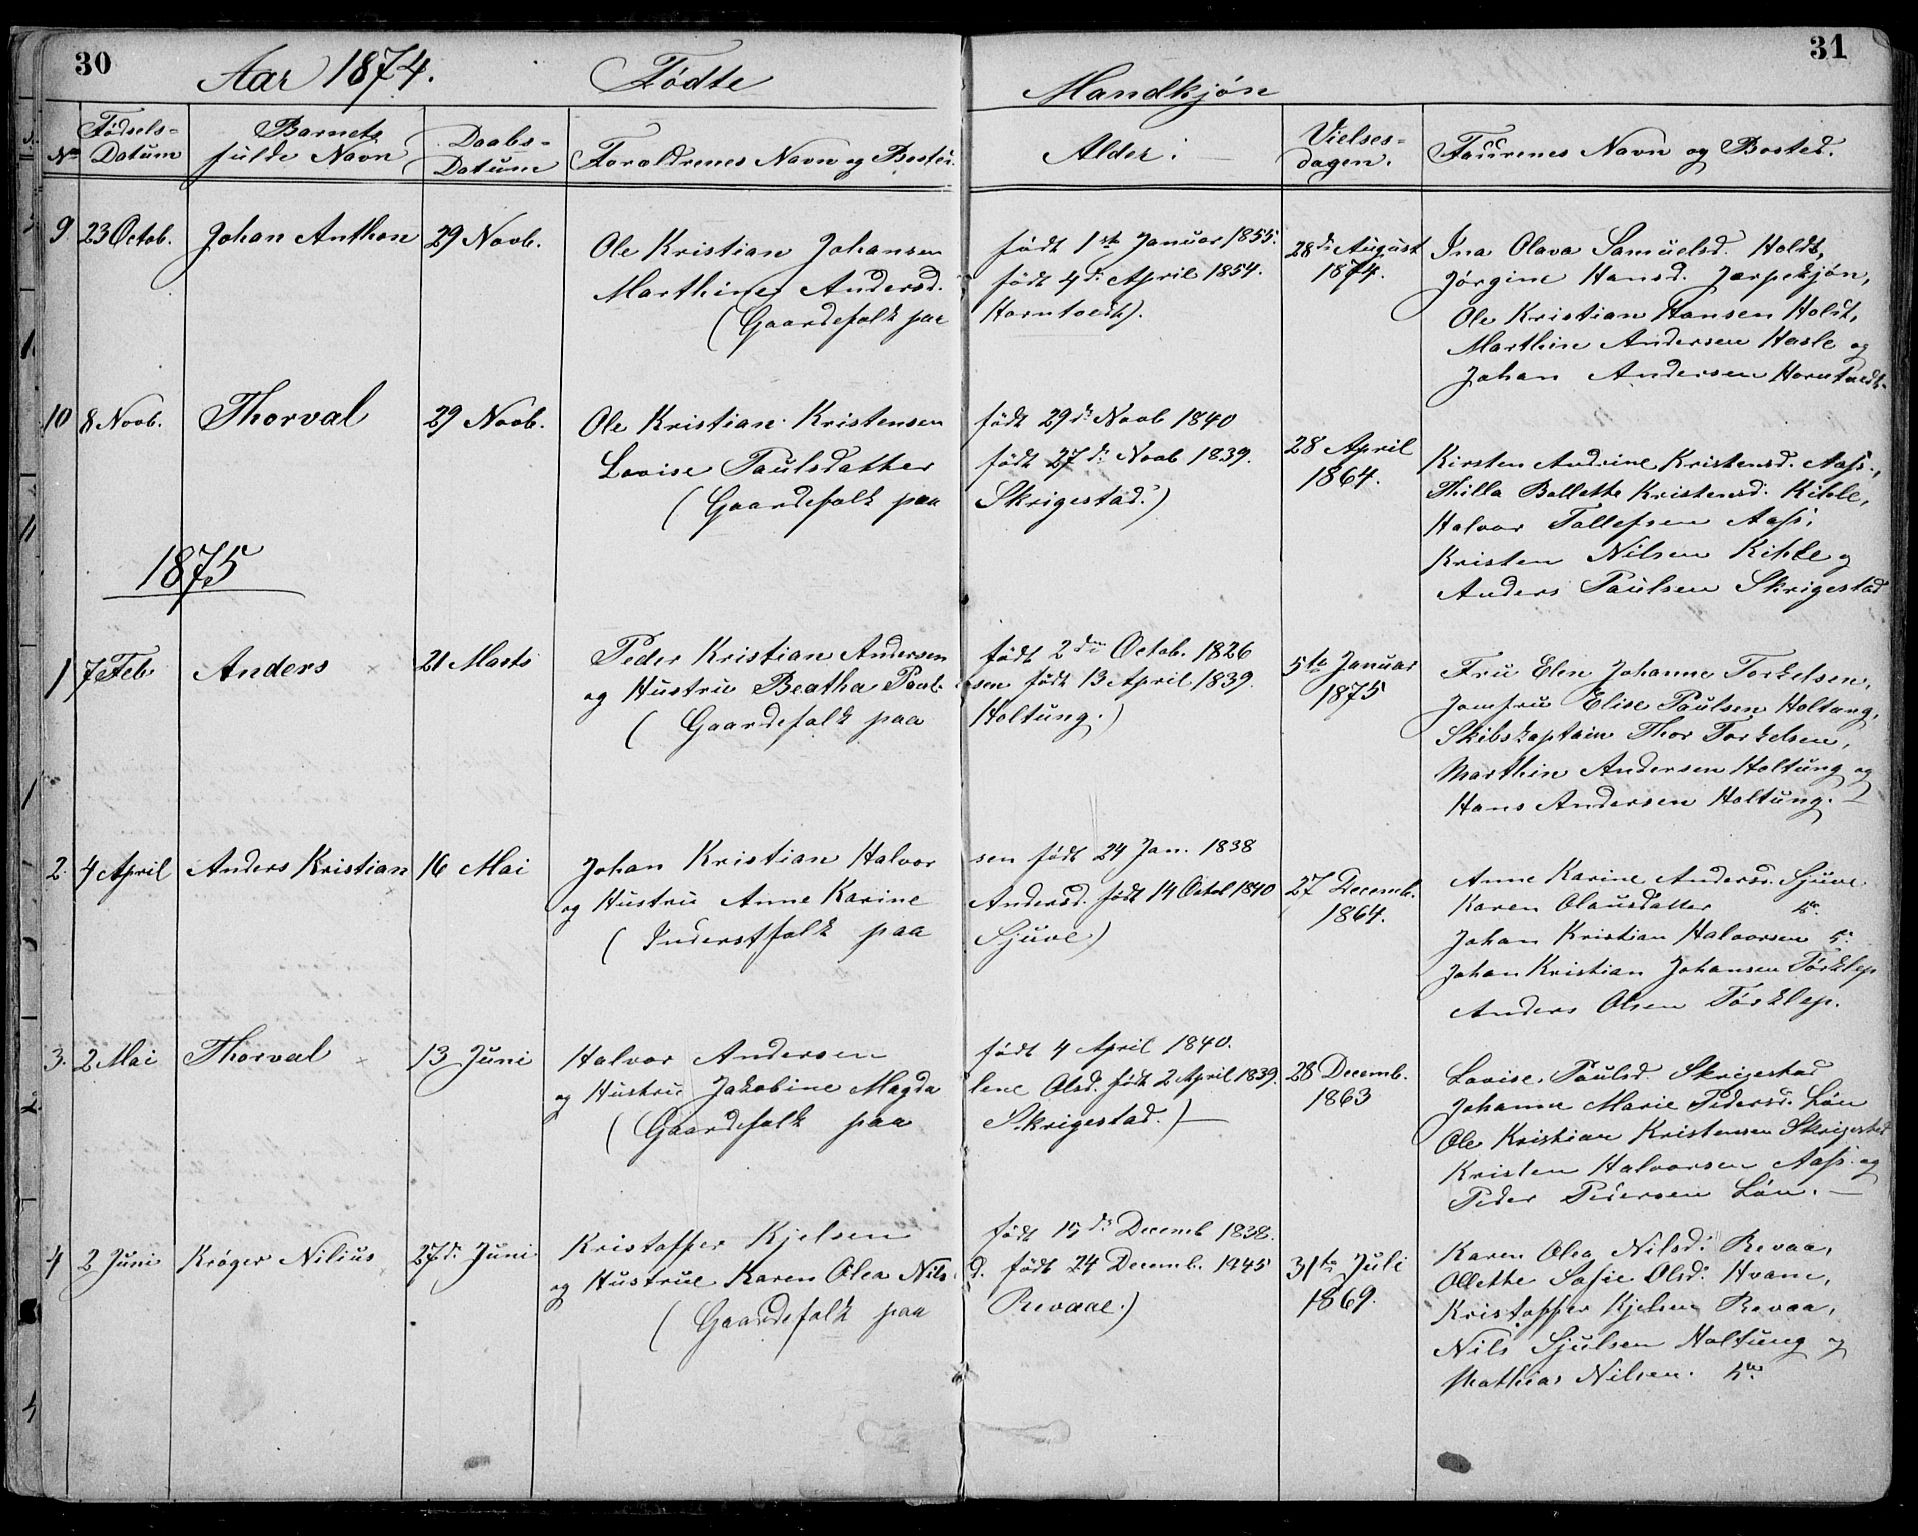 30
31
Aar 1874. Fødte Mandkjøn
No Fødsels-Datum Barnets fulde Navn Daabs-Datum Forældrenes Navn og Bested. Alder: Vielses-dagen. Faddrenes Navn og Bosted.
9 23 Octob. Johan Anthon 29 Novb.
Ole Kristian Johansen født 1ste Januar 1855.
Marthine Andersd. født 4de April 1854.
(Gaardefolk paa Horntvedt).
28de August
1874.
Ina Olava Samuelsd. Holdt,
Jørgine Hansd. Jarpekjøn,
Ole Kristian Hansen Holdt,
Marthin Andersen Hasle og
Johan Andersen Horntvedt
10 8 Novb. Thorval 29 Novb.
Ole Kristian Kristensen født 29de Novb 1840
Lovise Paulsdatter født 27de Novb 1839.
(Gaardefolk paa Skrigestad.)
28 April
1864.
Kirsten Andrine Kristensd. Aass,
Thilla Bollette Kristensd. Kihle,
Halvor Tollefsen Aass,
Kristen Nilsen Kihle og
Anders Paulsen Skrigestad
1875
1 7 Feb. Anders 21 Marts
Peder Kristian Andersen født 2den Octob. 1826
og Hustru Beatha Paulsen født 13 April 1839.
(Gaardefolk paa Holtung.)
5te Januar
1875
Fru Elen Johanne Torkelsen,
Jomfru Elise Paulsen Holtung,
Skibskaptain Thor Torkelsen,
Marthin Andersen Holtung og
Hans Andersen Holtung.
2. 4 April Anders Kristian 16 Mai
Johan Kristian Halvorsen født 24 Jan. 1838
og Hustru Anne Karine Andersd. født 14 Octob 1840
(Inderstfolk paa Sjuve)
27 Decemb.
1864.
Anne Karine Andersd. Sjuve
Karen Olausdatter
Johan Kristian Halvorsen
Johan Kristian Johansen Torklep
Anders Olsen Torklep.
3. 2 Mai Thorval 13 Juni
Halvor Andersen født 4 April 1840.
og Hustru Jakobine Magdalene Olsd. født 2 April 1839.
(Gaardefolk paa Skrigestad.)
28 Decemb.
1863
Lovise Paulsd. Skrigestad
Johanne Marie Pedersd. Løn
Ole Kristian Kristensen Skrigestad
Kristen Halvorsen Aass. og
Peder Pedersen Løn.
4 2 Juni Krøger Nilius 27de Juni
Kristoffer Kjelsen født 15de Decemb 1838.
og Hustrue Karen Olea Nilsd. født 24 Decemb. 1845
(Gaardefolk paa Revaae.)
31te Juli
1869.
Karen Olea Nilsd. Revaa,
Ollette Sofie Olsd. Hvam,
Kristoffer Kjelsen Revaa,
Nils Sjulsen Holtung og
Mathias Nilsen.